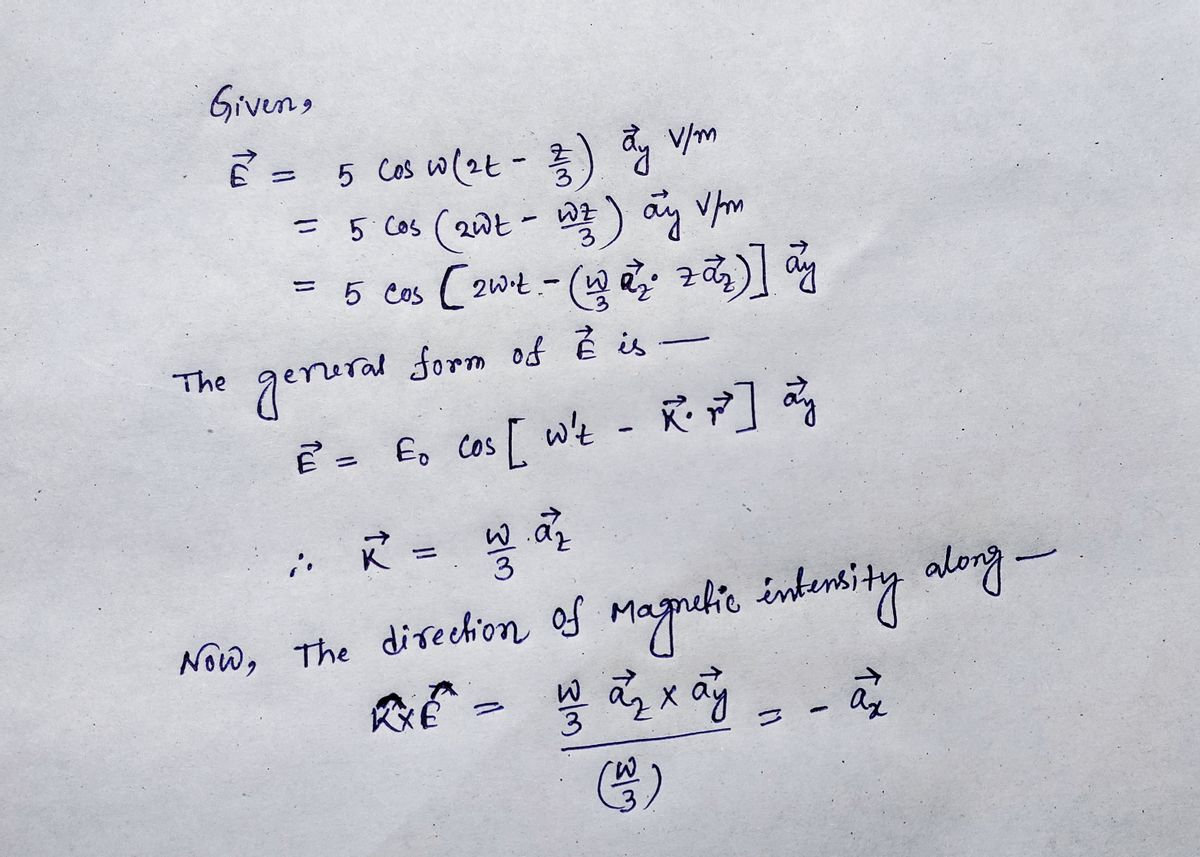 Given,
E⃗ = 5 cos ω(2t - z/3) a⃗y V/m
= 5 cos (2ωt - ωz/3) a⃗y V/m
= 5 cos [2ω·t - (ω/3 a⃗z · z a⃗z)] a⃗y
The general form of E⃗ is —
E⃗ = E₀ cos [ω't - K⃗·r⃗] a⃗y
∴ K⃗ = ω/3 · a⃗z
Now, The direction of Magnetic intensity along —
K̂×Ê = (ω/3 a⃗z × a⃗y)/(ω/3) = - a⃗x